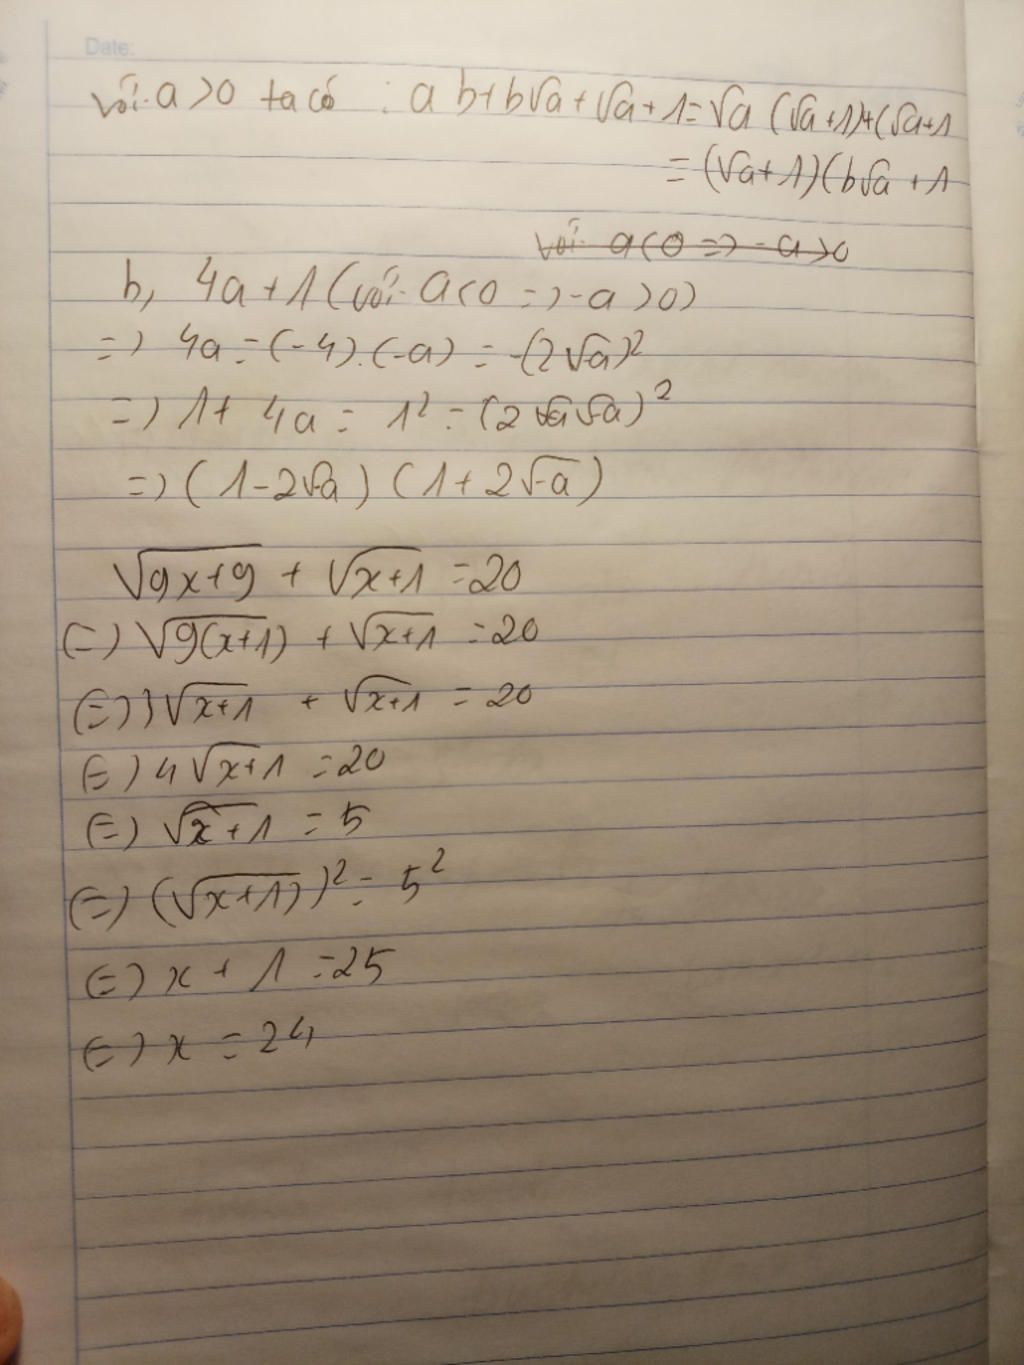 Date:
với a > 0 ta có : a b + b√a + √a + 1 = √a (√a + 1) + (√a + 1
= (√a + 1)(b√a + 1
với a < 0 => - a > 0
b, 4a + 1 (với a < 0 => -a > 0)
=> 4a = (-4).(-a) = -(2√a)²
=> 1 + 4a = 1² - (2 √a)²
=> (1 - 2√-a) (1 + 2√-a)
√9x+9 + √x+1 = 20
(=) √9(x+1) + √x+1 = 20
(=) 3√x+1 + √x+1 = 20
(=) 4√x+1 = 20
(=) √x+1 = 5
(=) (√x+1))² = 5²
(=) x + 1 = 25
(=) x = 24